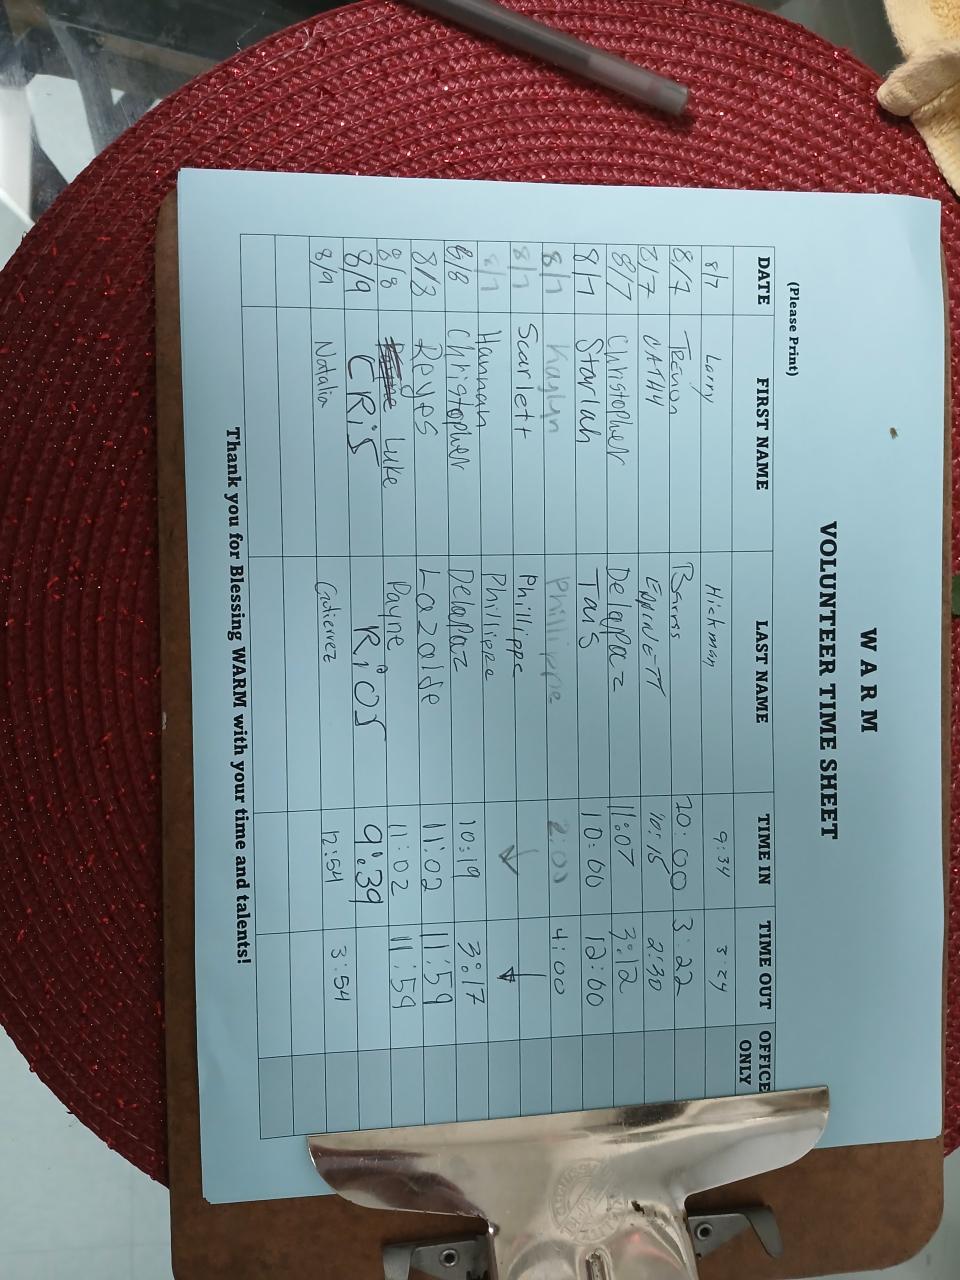 WARM
VOLUNTEER TIME SHEET
(Please Print)
DATE FIRST NAME LAST NAME TIME IN TIME OUT OFFICE ONLY
8/7 Larry Hickman 9:34 3:24
8/7 Trevion 3:22
8/7 CATHY 10:15 2:30
8/7 Christopher Delapaz 11:07 3:12
8/7 Starlah Tais 10:00 12:00
8/7 Kaylyn Phillippe 2:00 4:00
8/7 Scarlett Phillippe
8/7 Hannah Phillippe
8/8 Christopher Delapaz 10:19 3:17
8/8 Reyes Lazalde 11:02 11:59
8/8 Luke Payne 11:02 11:59
8/9 CRiS RiOS 9:39
8/9 Natalia Gutierrez 12:54 3:54
Thank you for Blessing WARM with your time and talents!